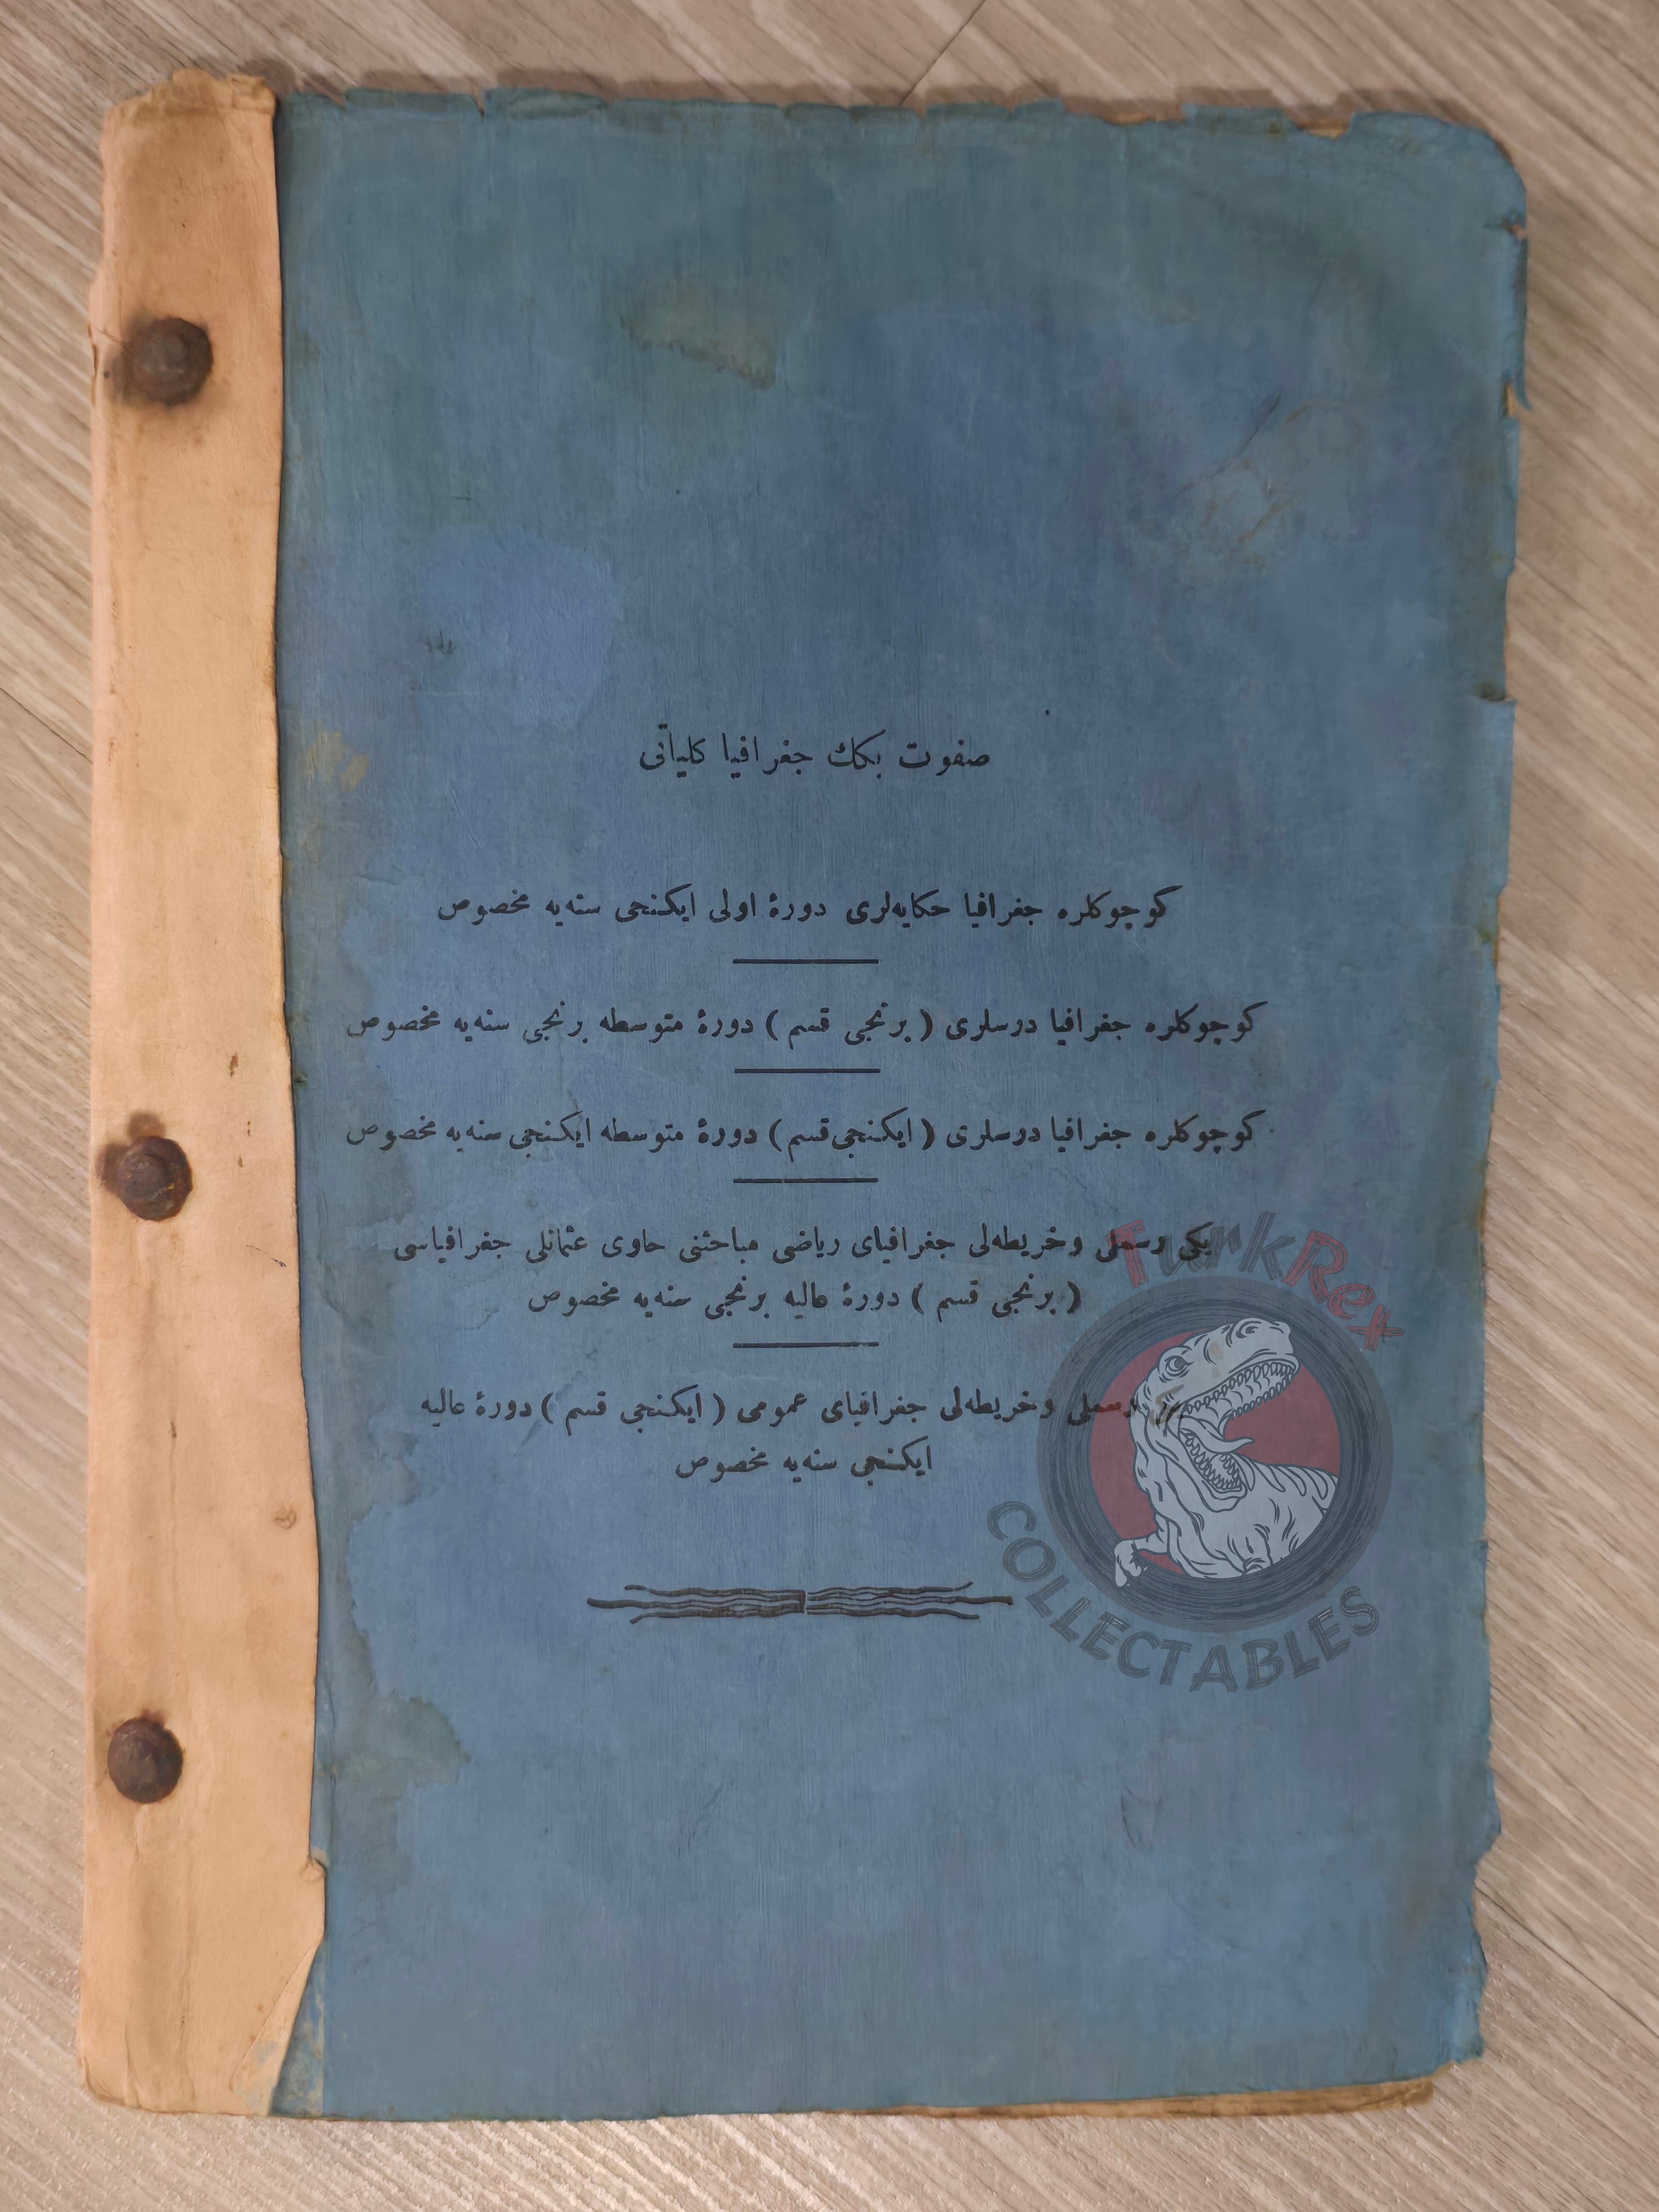 صفوت بكك جغرافيا كلياتى
كوچوكلره جغرافيا حكايه‌لرى دورۀ اولى ايكنجى سنه‌يه مخصوص
كوچوكلره جغرافيا درسلرى ( برنجى قسم ) دورۀ متوسطه برنجى سنه‌يه مخصوص
كوچوكلره جغرافيا درسلرى ( ايكنجى قسم ) دورۀ متوسطه ايكنجى سنه‌يه مخصوص
يكى رسملى وخريطه‌لى جغرافياى رياضى مباحثنى حاوى عثمانلى جغرافياسى
( برنجى قسم ) دورۀ عاليه برنجى سنه‌يه مخصوص
رسملى وخريطه‌لى جغرافياى عمومى ( ايكنجى قسم ) دورۀ عاليه
ايكنجى سنه‌يه مخصوص
TurkRex
COLLECTABLES